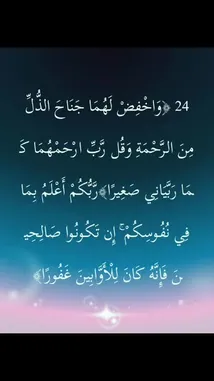 24 ﴿وَاخْفِضْ لَهُمَا جَنَاحَ الذُّلِّ
مِنَ الرَّحْمَةِ وَقُل رَّبِّ ارْحَمْهُمَا كَ
مَا رَبَّيَانِي صَغِيرًا﴾رَّبُّكُمْ أَعْلَمُ بِمَا
فِي نُفُوسِكُمْ ۚ إِن تَكُونُوا صَالِحِي
نَ فَإِنَّهُ كَانَ لِلْأَوَّابِينَ غَفُورًا﴾